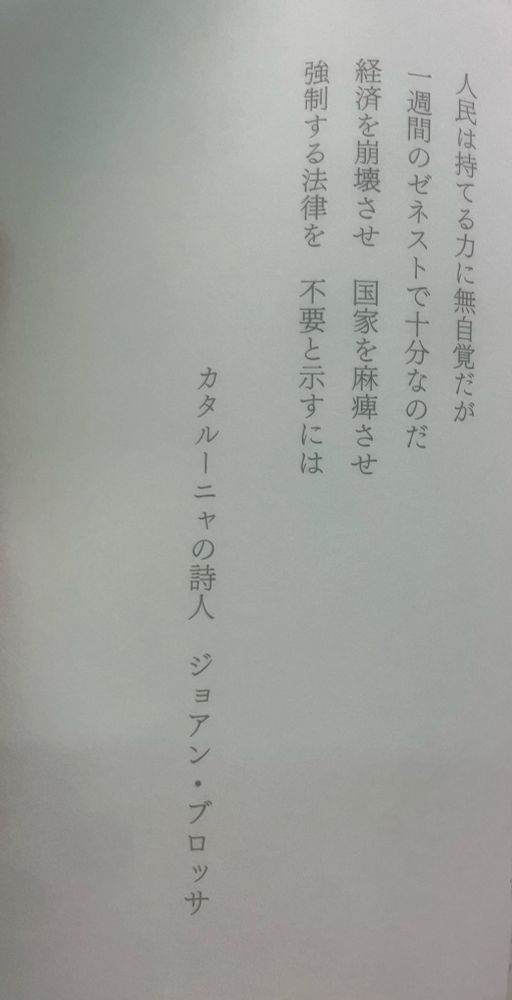 人民は持てる力に無自覚だが
一週間のゼネストで十分なのだ
経済を崩壊させ　国家を麻痺させ
強制する法律を　不要と示すには
カタルーニャの詩人　ジョアン・ブロッサ